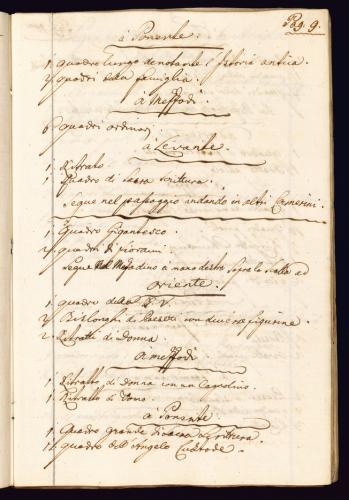 Pag. 9.
à Ponente:
1. quadro lungo denotante l'Istoria antica.
2. quadri della famiglia.
à Meffodì.
6. quadri ordinarj
à Levante.
1. Ritratto
1. Quadro di Sacra Scrittura.
Segue nel passaggio andando in altri Camerini.
1. Quadro Gigantesco
2. quadri di fiorami
Segue Nel a mano destra sopra la Scala ad
oriente.
1. quadro della B. V.
2. Bislonghi di Paesetti con diverse figurine
2. Ritratti di Donna.
à meffodì
1. Ritratto di Donna con un Cagnolino.
1. Ritratto di Uomo.
à Ponente.
1. Quadro grande di Scrittura.
1. quadro dell'Angelo Custode.